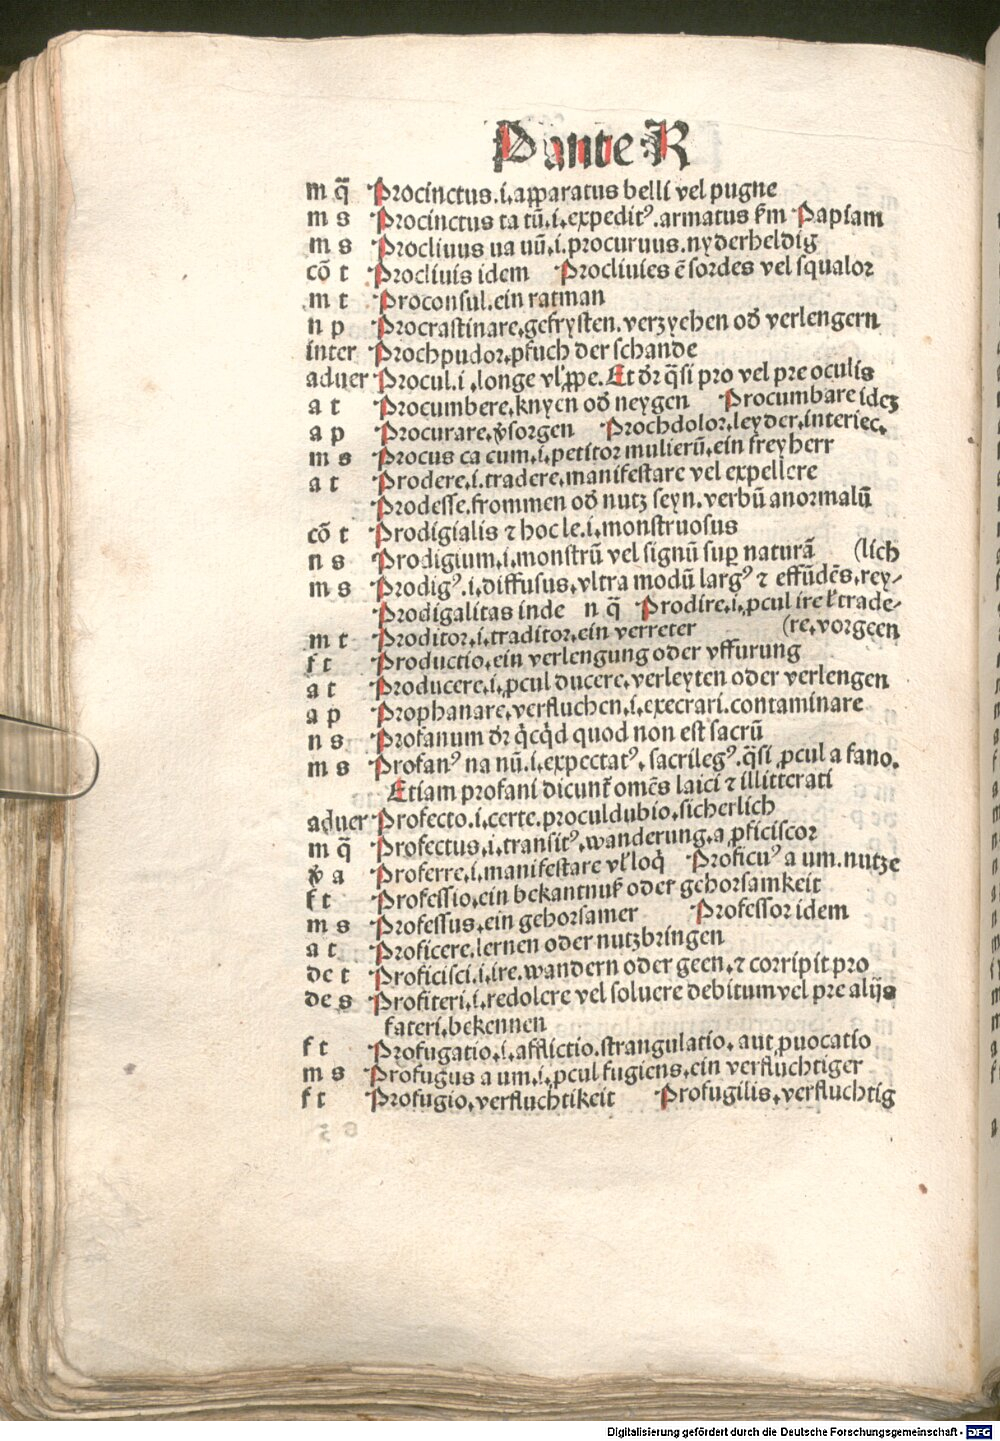 P ante R
m q̄ Procinctus.i.apparatus belli vel pugne
m s Procinctus ta tū.i.expeditꝰ.armatus fm Papiam
m s Procliuus ua uū.i.procuruus.nyderheldig
cō t Procliuis idem Procliuies ē sordes vel squalor
m t Proconsul.ein ratman
n p Procrastinare.gefrysten.verzyehen od̕ verlengern
inter Prochpudor.pfuch der schande
aduer Procul.i.longe vl̕ ꝓpe.Et dr̄ q̄si pro vel pre oculis
a t Procumbere.knyen od̕ neygen Procumbare idez
a p Procurare.v̕sorgen Prochdolor.leyder.interiec.
m s Procus ca cum.i.petitor mulierū.ein freyherr
a t Prodere.i.tradere.manifestare vel expellere
Prodesse.frommen od̕ nutz seyn.verbū anormalū
cō t Prodigialis ⁊ hoc le.i.monstruosus
n s Prodigium.i.monstrū vel signū suꝑ naturā (lich
m s Prodigꝰ.i.diffusus.vltra modū largꝰ ⁊ effūdēs.rey-
Prodigalitas inde n q̄ Prodire.i.ꝓcul ire l̕ trade-
m t Proditor.i.traditor.ein verreter (re.vorgeen
f t Productio.ein verlengung oder vffurung
a t Producere.i.ꝓcul ducere.verleyten oder verlengen
a p Prophanare.verfluchen.i.execrari.contaminare
n s Profanum dr̄ q̇cq̇d quod non est sacrū
m s Profanꝰ na nū.i.expectatꝰ.sacrilegꝰ.q̄si ꝓcul a fano.
Etiam profani dicunt̕ omēs laici ⁊ illitterati
aduer Profecto.i.certe.proculdubio.sicherlich
m q̄ Profectus.i.transitꝰ.wanderung.a ꝓficiscor
v̕ a Proferre.i.manifestare vl̕ loq̇ Proficuꝰ a um.nutze
f t Professio.ein bekantnuß oder gehorsamkeit
m s Professus.ein gehorsamer Professor idem
a t Proficere.lernen oder nutzbringen
de t Proficisci.i.ire.wandern oder geen.⁊ corripit pro
de s Profiteri.i.redolere vel soluere debitum vel pre alijs
fateri.bekennen
f t Profugatio.i.afflictio.strangulatio.aut ꝓuocatio
m s Profugus a um.i.ꝓcul fugiens.ein verfluchtiger
f t Profugio.verfluchtikeit Profugilis.verfluchtig
Digitalisierung gefördert durch die Deutsche Forschungsgemeinschaft - DFG